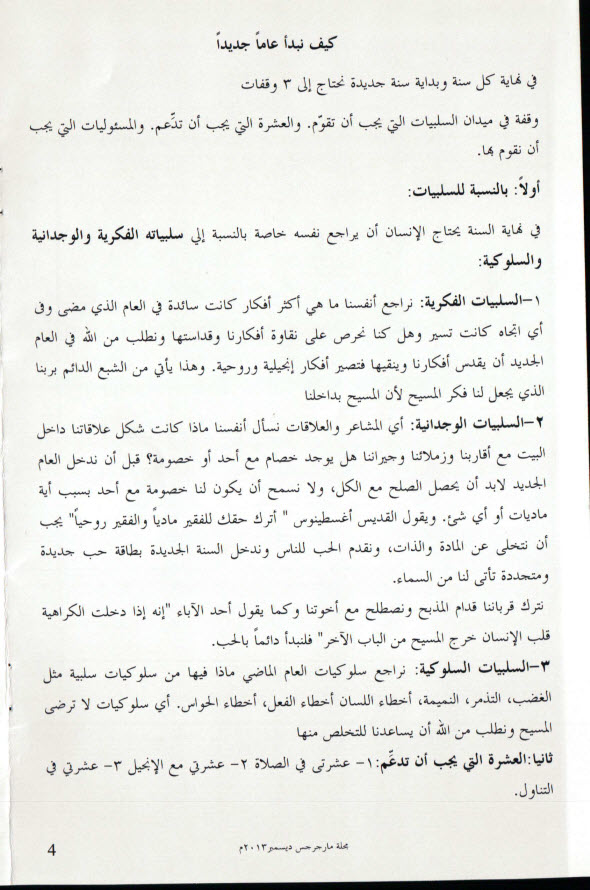 كيف نبدأ عاماً جديداً
في نهاية كل سنة وبداية سنة جديدة نحتاج إلى ٣ وقفات
وقفة في ميدان السلبيات التي يجب أن تقوّم. والعشرة التي يجب أن تدَّعم. والمسئوليات التي يجب
أن نقوم بها.
أولاً: بالنسبة للسلبيات:
في نهاية السنة يحتاج الإنسان أن يراجع نفسه خاصة بالنسبة إلي سلبياته الفكرية والوجدانية
والسلوكية:
١–السلبيات الفكرية: نراجع أنفسنا ما هي أكثر أفكار كانت سائدة في العام الذي مضى وفى
أي اتجاه كانت تسير وهل كنا نحرص على نقاوة أفكارنا وقداستها ونطلب من الله في العام
الجديد أن يقدس أفكارنا وينقيها فتصير أفكار إنجيلية وروحية. وهذا يأتي من الشبع الدائم بربنا
الذي يجعل لنا فكر المسيح لأن المسيح بداخلنا
٢–السلبيات الوجدانية: أي المشاعر والعلاقات نسأل أنفسنا ماذا كانت شكل علاقاتنا داخل
البيت مع أقاربنا وزملائنا وجيراننا هل يوجد خصام مع أحد أو خصومة؟ قبل أن ندخل العام
الجديد لابد أن يحصل الصلح مع الكل، ولا نسمح أن يكون لنا خصومة مع أحد بسبب أية
ماديات أو أي شئ. ويقول القديس أغسطينوس " أترك حقك للفقير مادياً والفقير روحياً" يجب
أن نتخلى عن المادة والذات، ونقدم الحب للناس وندخل السنة الجديدة بطاقة حب جديدة
ومتجددة تأتى لنا من السماء.
نترك قرباننا قدام المذبح ونصطلح مع أخوتنا وكما يقول أحد الآباء "إنه إذا دخلت الكراهية
قلب الإنسان خرج المسيح من الباب الآخر" فلنبدأ دائماً بالحب.
٣–السلبيات السلوكية: نراجع سلوكيات العام الماضي ماذا فيها من سلوكيات سلبية مثل
الغضب، التذمر، النميمة، أخطاء اللسان أخطاء الفعل، أخطاء الحواس. أي سلوكيات لا ترضى
المسيح ونطلب من الله أن يساعدنا للتخلص منها
ثانيا:العشرة التي يجب أن تدعَّم:١- عشرتى في الصلاة ٢- عشرتي مع الإنجيل ٣- عشرتي في
التناول.
مجلة مارجرجس ديسمبر٢٠١٣م
4